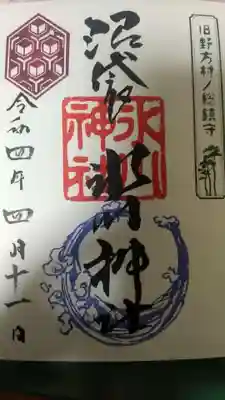 旧野方村ノ総鎮守
沼袋
氷川神社
氷川神社
令和四年四月十一日